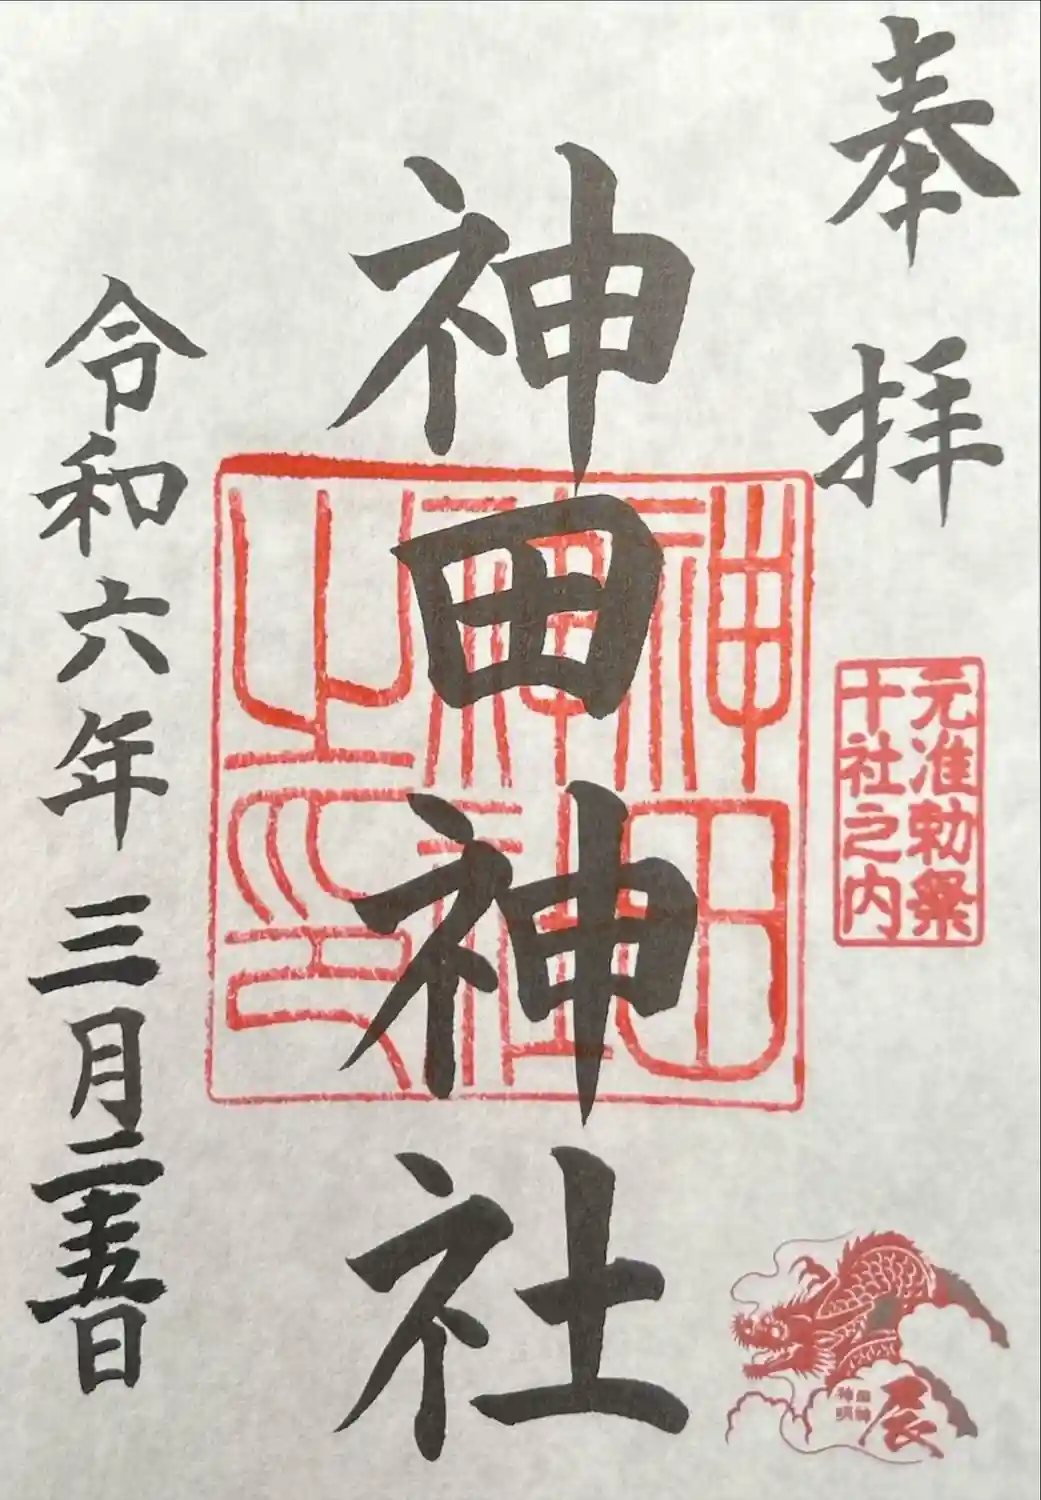 奉拝
元准勅祭
十社之内
神田神社
神田
神社
之印
令和六年三月二十五日
辰
神田
明神